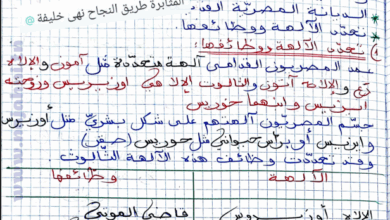 المثابرة طريق النجاح نهى خليفة @
الديانة المصرية القد
تعدد الآلهة ووظائفها
1) تعدد الآلهة ووظائفها:
عبد المصريون القدامى آلهة متعددة مثل آمون والإلاه
رع والإلاه آتون والثالوث الإلاهي أوزيريس وزوجته
ايزيس وابنهما حوريس
جسّم المصريون آلهتهم على شكل بشري مثل أوزيرس
وايزيس أو برأس حيواني مثل حوريس (صقر)
وقد تعددت وظائف هذه الآلهة الثالوث.
الآلهة وظائفها
الإلاه أوز قاضي الموتى